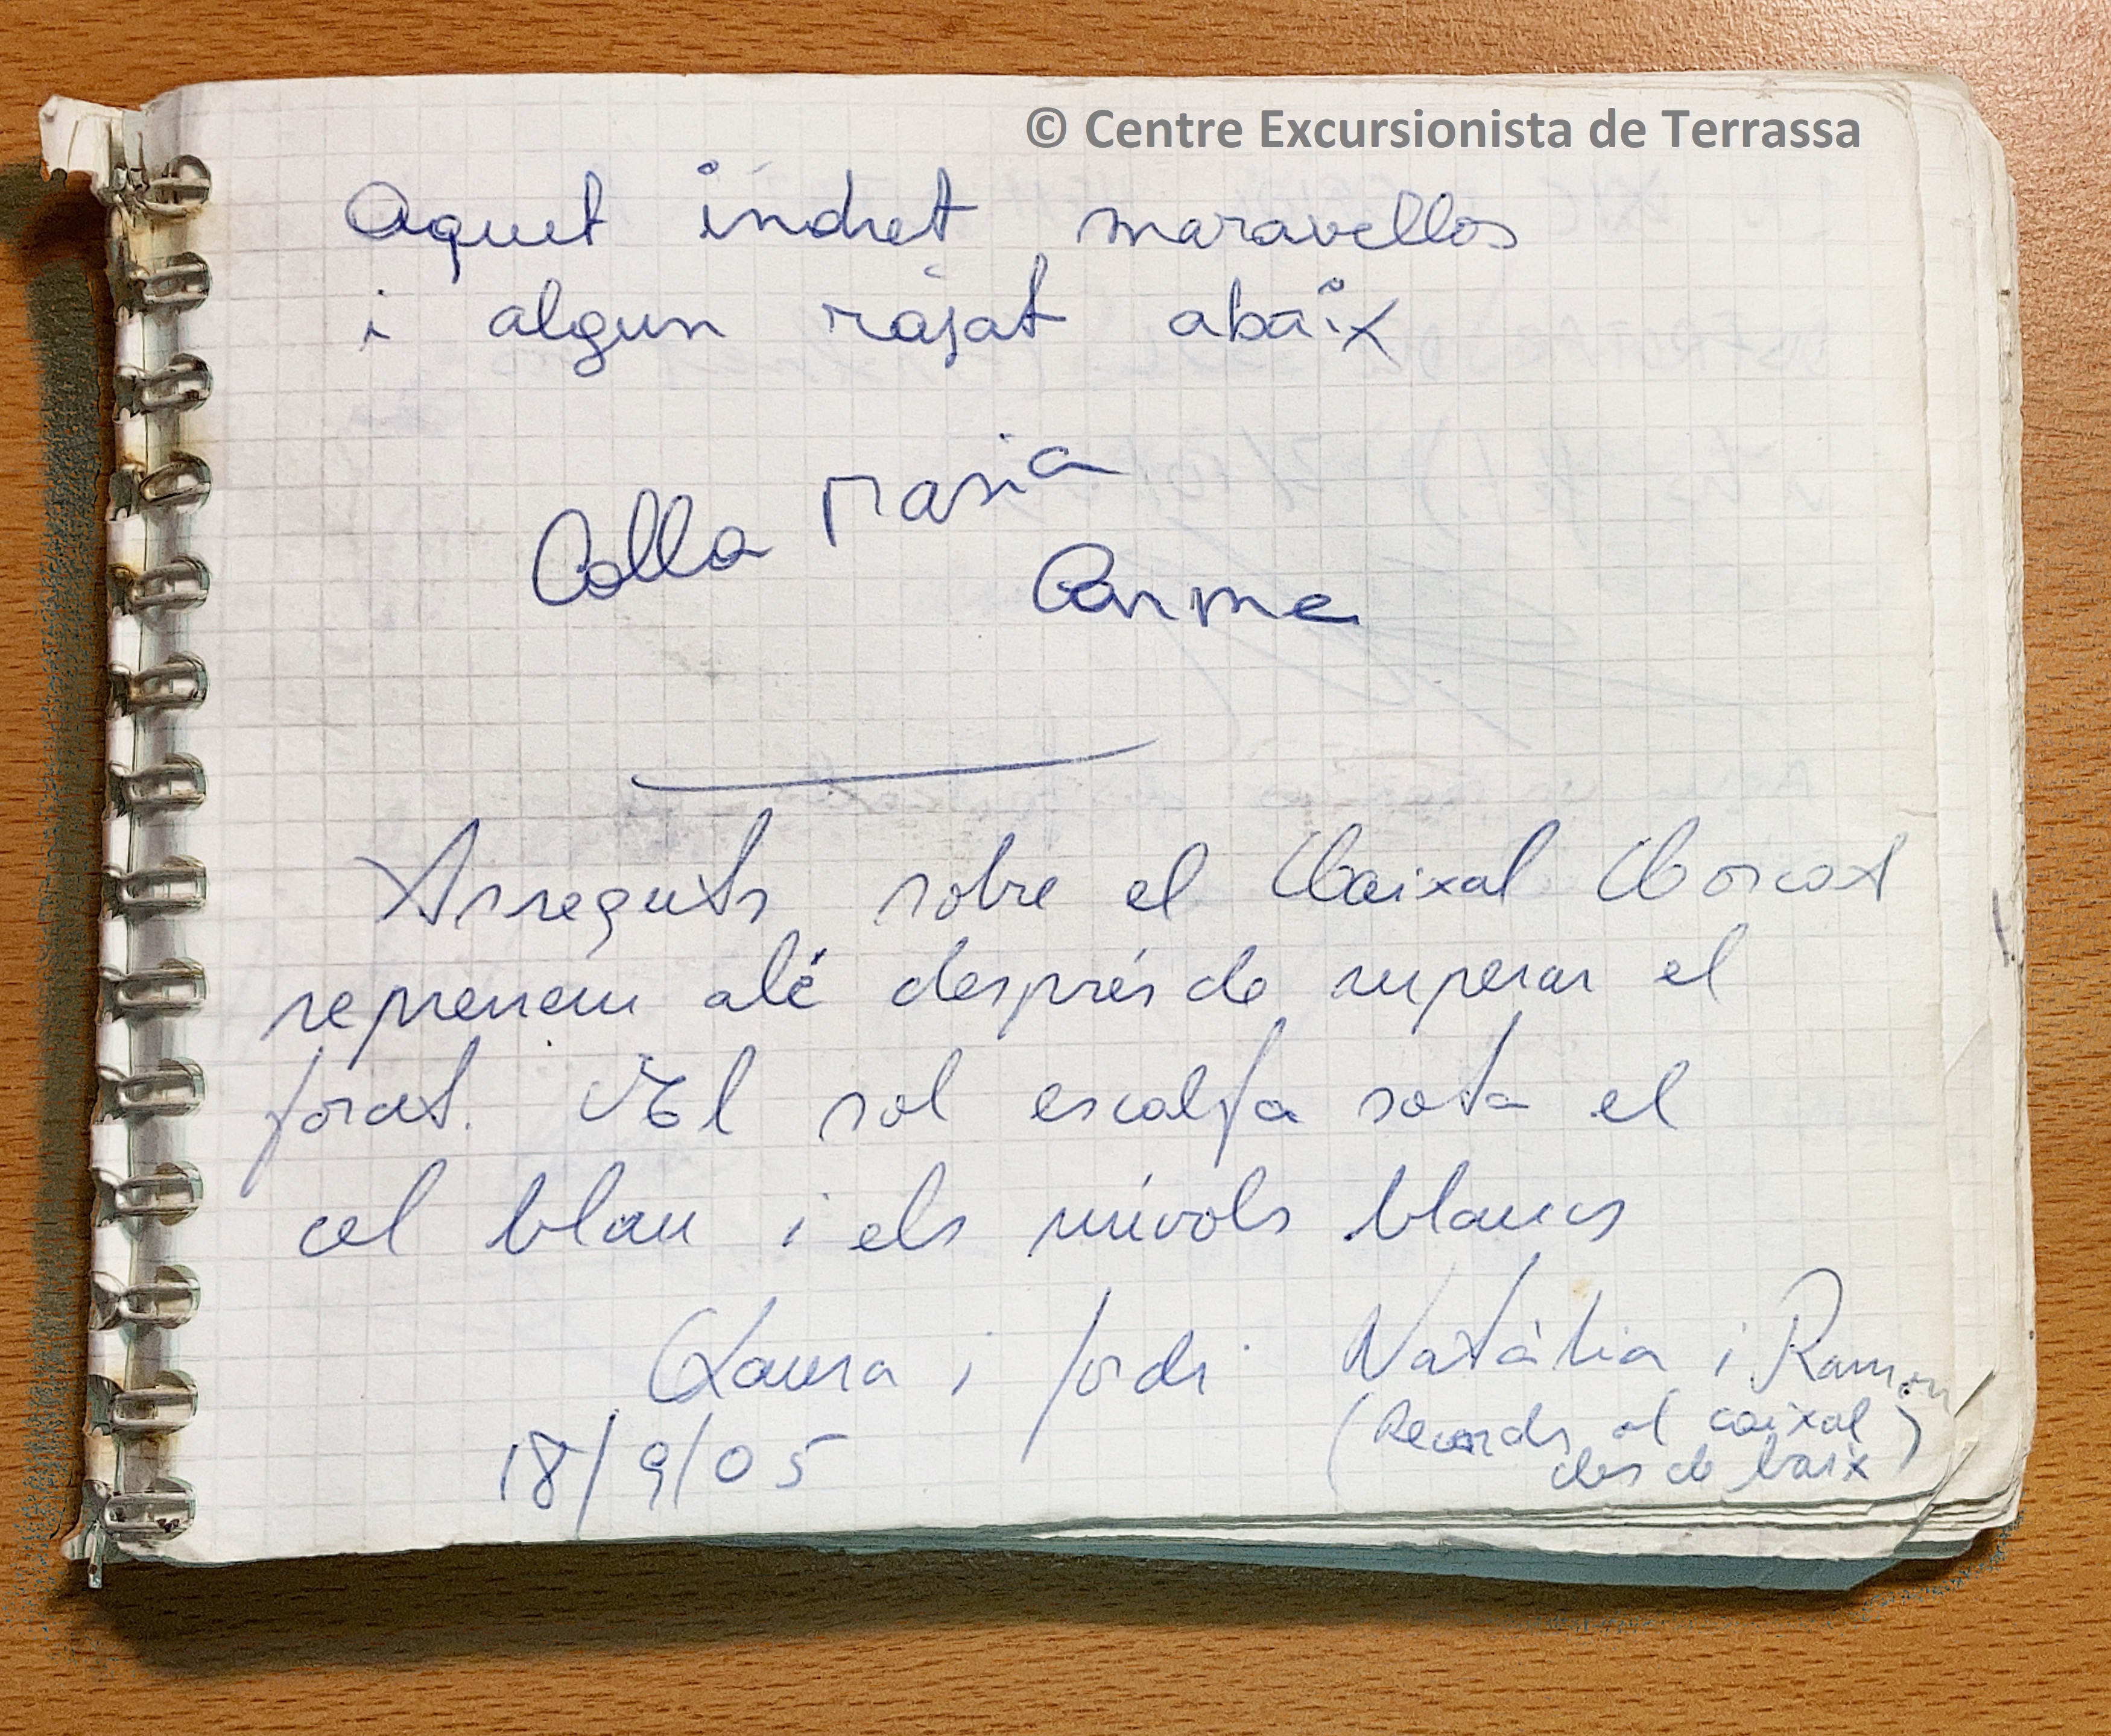 © Centre Excursionista de Terrassa
Aquet indret maravellos
i algun rajat abaix
Colla Maria
Carme
Asseguts sobre el Caixal Corcat
reprenem alé després de superar el
forat. El sol escalfa sota el
cel blau i els núvols blancs
Laura i Jordi Natàlia i Ramon
(Records al caixal)
des de baix
18/9/05